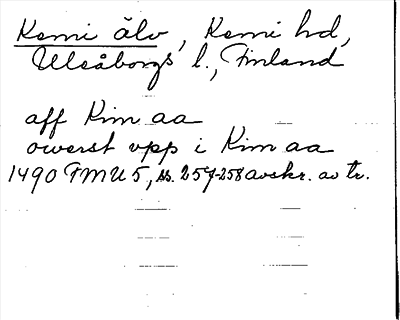 Kemi älv, Kemi hd,
Uleåborgs l., Finland
aff Kim aa
owerst vpp i Kim aa
1490 FMU 5, ss. 257-258 avskr. av tr.